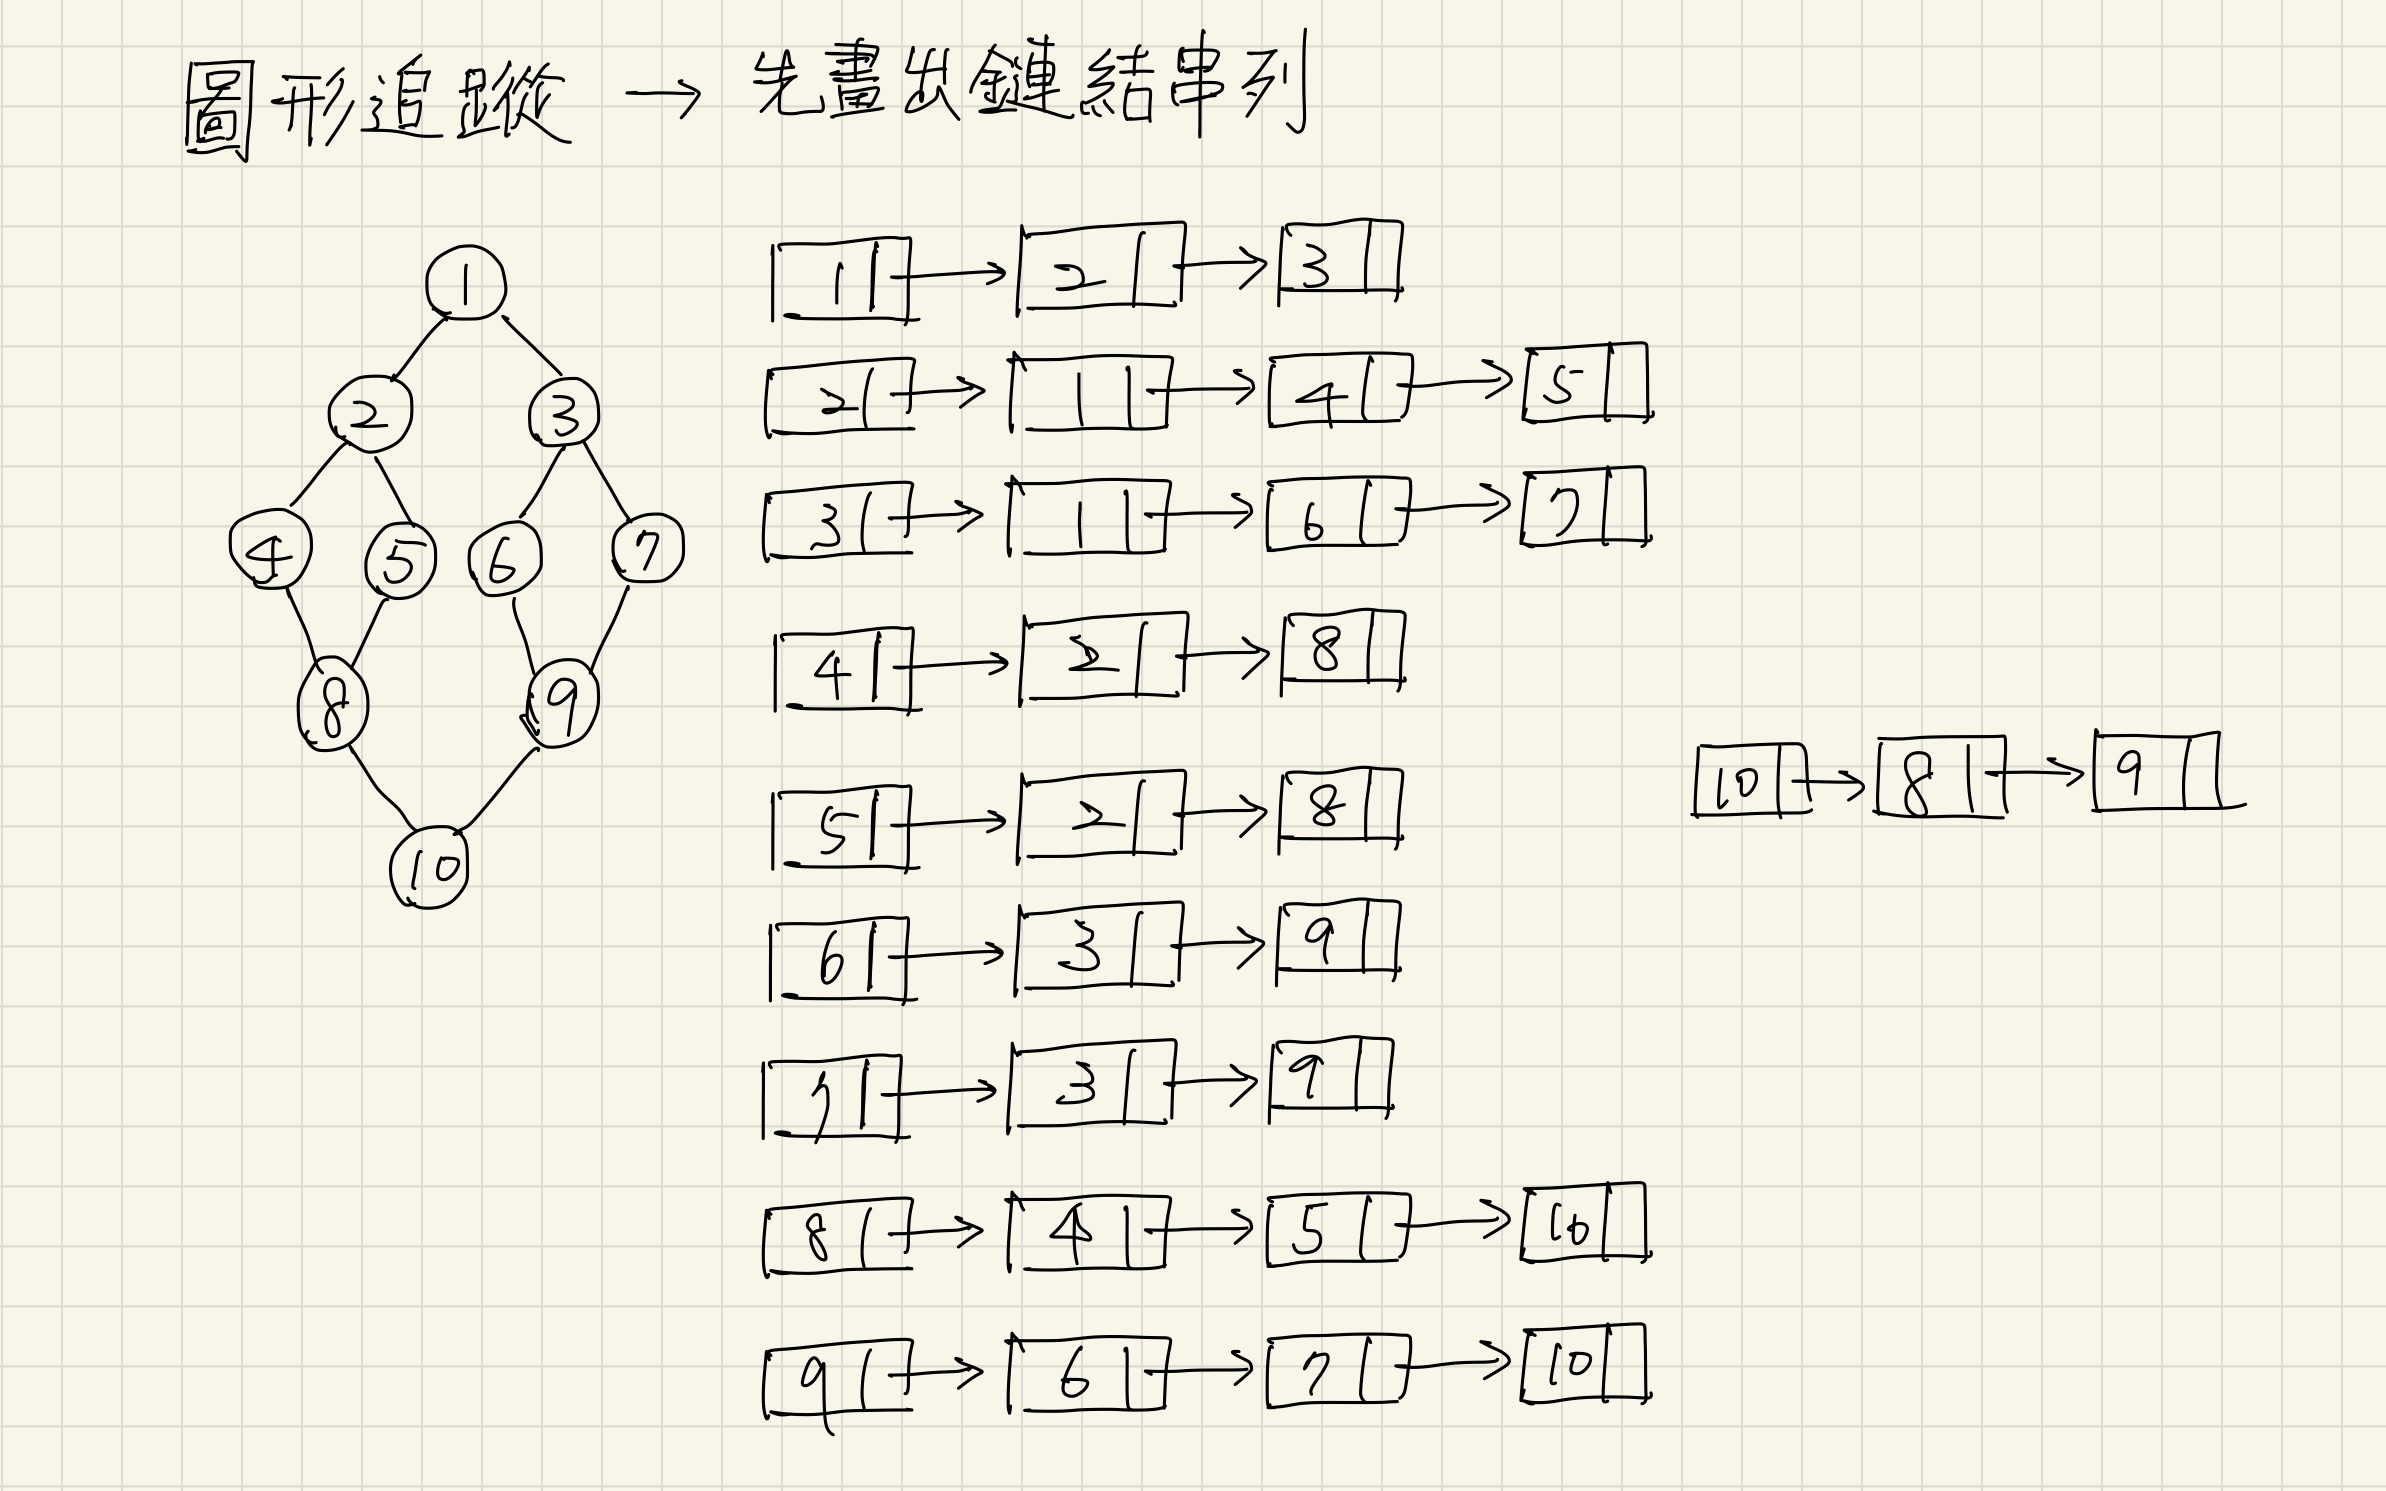 圖形追蹤 → 先畫出鏈結串列
1
2 3
4 5 6 7
8 9
10
1 → 2 → 3
2 → 1 → 4 → 5
3 → 1 → 6 → 7
4 → 2 → 8
5 → 2 → 8
6 → 3 → 9
7 → 3 → 9
8 → 4 → 5 → 10
9 → 6 → 7 → 10
10 → 8 → 9